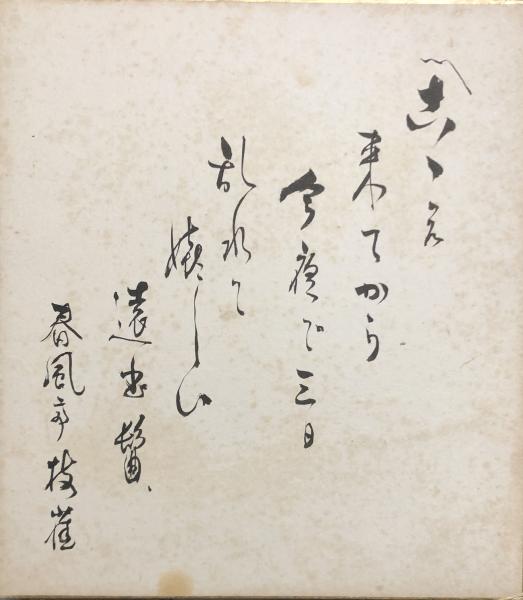 〽古ゝへ
来てから
今夜で三日
乱れて
嬉しい
遠出髷、
春風亭枝雀